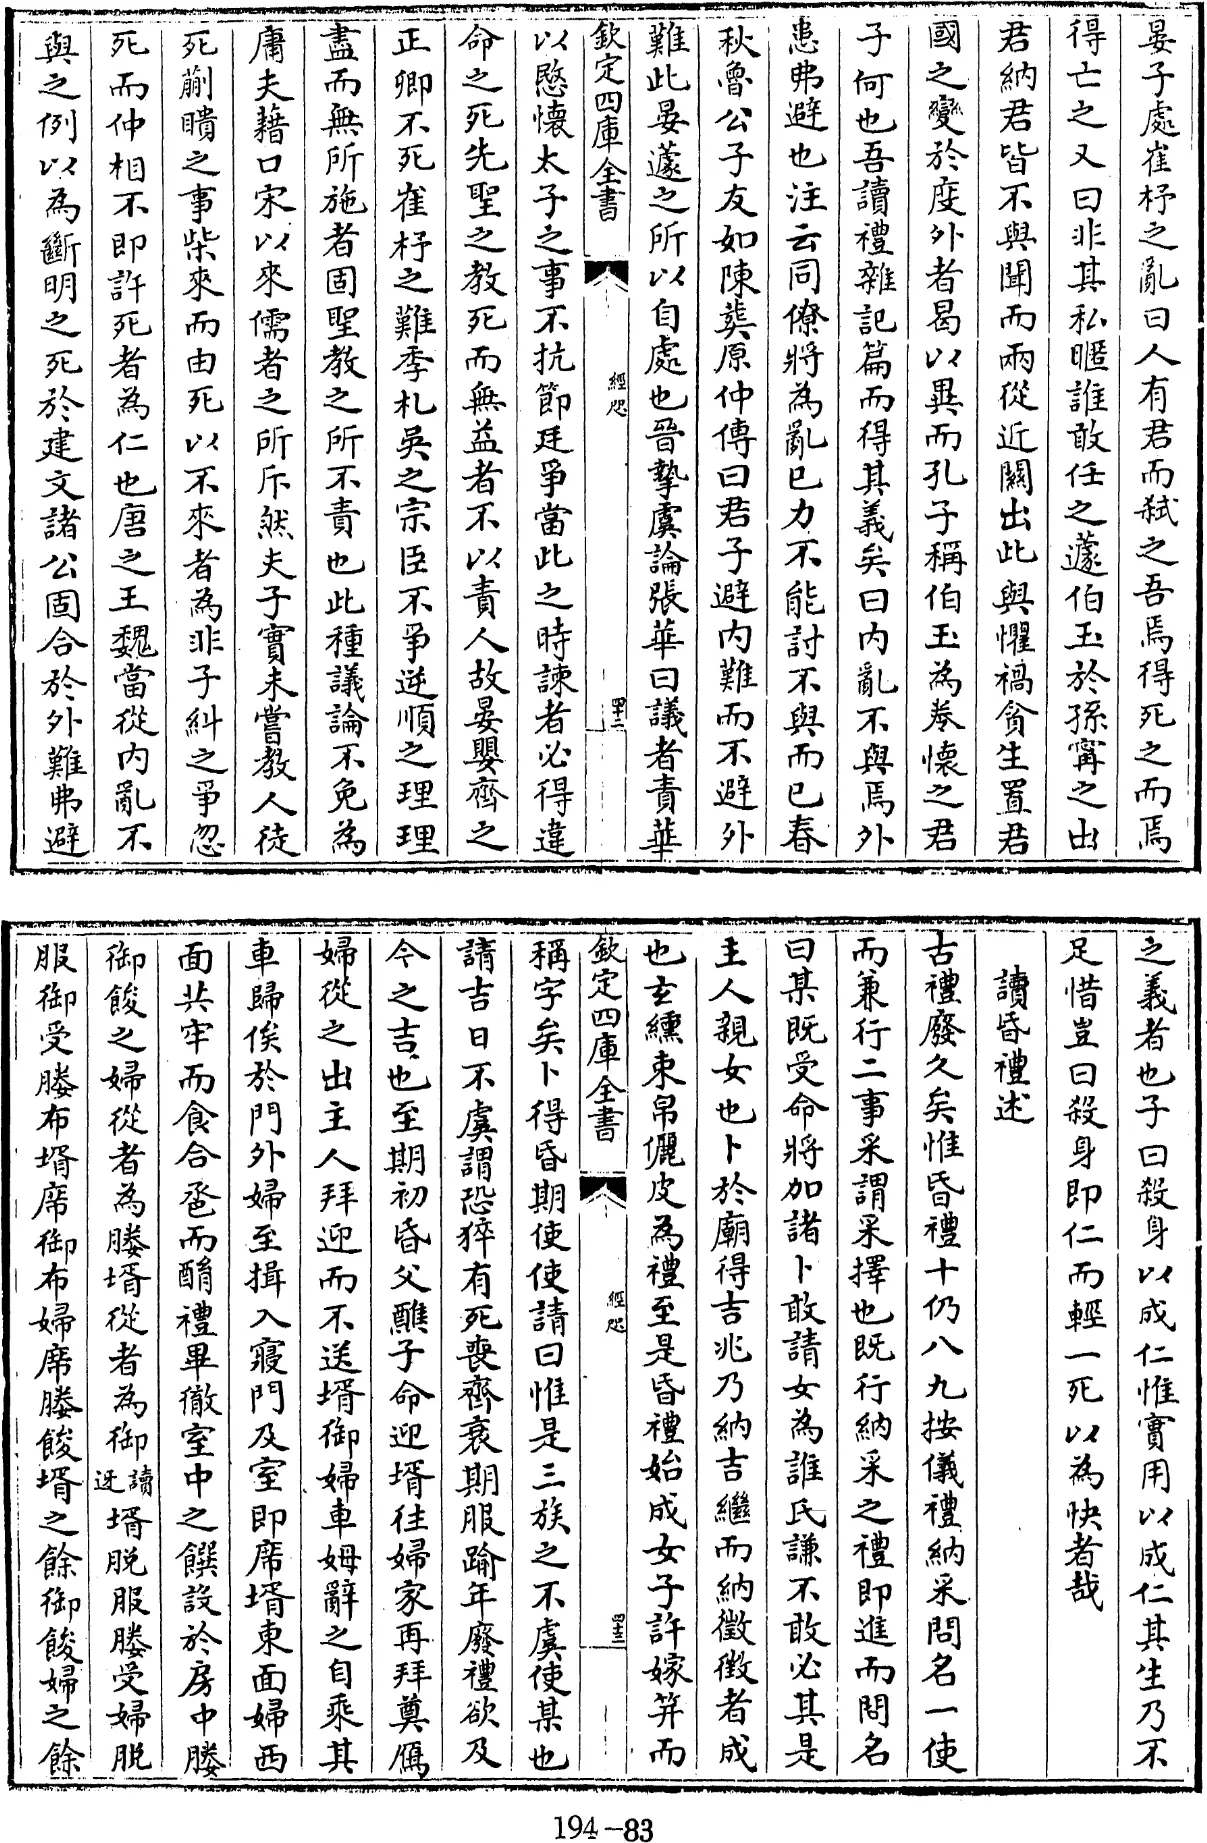 晏子處崔杼之亂曰人有君而弑之吾焉得死之而焉
得亡之又曰非其私暱誰敢任之蘧伯玉於孫甯之出
君納君皆不與聞而兩從近關出此與懼禍貪生置君
國之變於度外者曷以異而孔子稱伯玉為卷懷之君
子何也吾讀禮雜記篇而得其義矣曰内亂不與焉外
患弗避也注云同僚將為亂已力不能討不與而已春
秋魯公子友如陳葬原仲傳曰君子避内難而不避外
難此晏蘧之所以自處也晉摯虞論張華曰議者責華
欽定四庫全書
經咫
四十二
以愍懷太子之事不抗節廷爭當此之時諫者必得違
命之死先聖之教死而無益者不以責人故晏嬰齊之
正卿不死崔杼之難季札吳之宗臣不爭逆順之理理
盡而無所施者固聖教之所不責也此種議論不免為
庸夫藉口宋以來儒者之所斥然夫子實未嘗教人徒
死蒯聵之事柴來而由死以不來者為非子糾之爭忽
死而仲相不即許死者為仁也唐之王魏當從内亂不
與之例以為斷明之死於建文諸公固合於外難弗避
之義者也子曰殺身以成仁惟實用以成仁其生乃不
足惜豈曰殺身即仁而輕一死以為快者哉
讀昏禮述
古禮廢久矣惟昏禮十仍八九按儀禮納采問名一使
而兼行二事采謂采擇也既行納采之禮即進而問名
曰某既受命將加諸卜敢請女為誰氏謙不敢必其是
主人親女也卜於廟得吉兆乃納吉繼而納徵徵者成
也玄纁束帛儷皮為禮至是昏禮始成女子許嫁笄而
欽定四庫全書
經咫
四十三
稱字矣卜得昏期使使請曰惟是三族之不虞使某也
請吉日不虞謂恐猝有死喪齊衰期服踰年廢禮欲及
今之吉也至期初昏父醮子命迎壻往婦家再拜奠鴈
婦從之出主人拜迎而不送壻御婦車姆辭之自乘其
車歸俟於門外婦至揖入寢門及室即席壻東面婦西
面共牢而食合巹而酳禮畢徹室中之饌設於房中媵
御餕之婦從者為媵壻從者為御讀迓壻脱服媵受婦脱
服御受媵布壻席御布婦席媵餕壻之餘御餕婦之餘
194-83